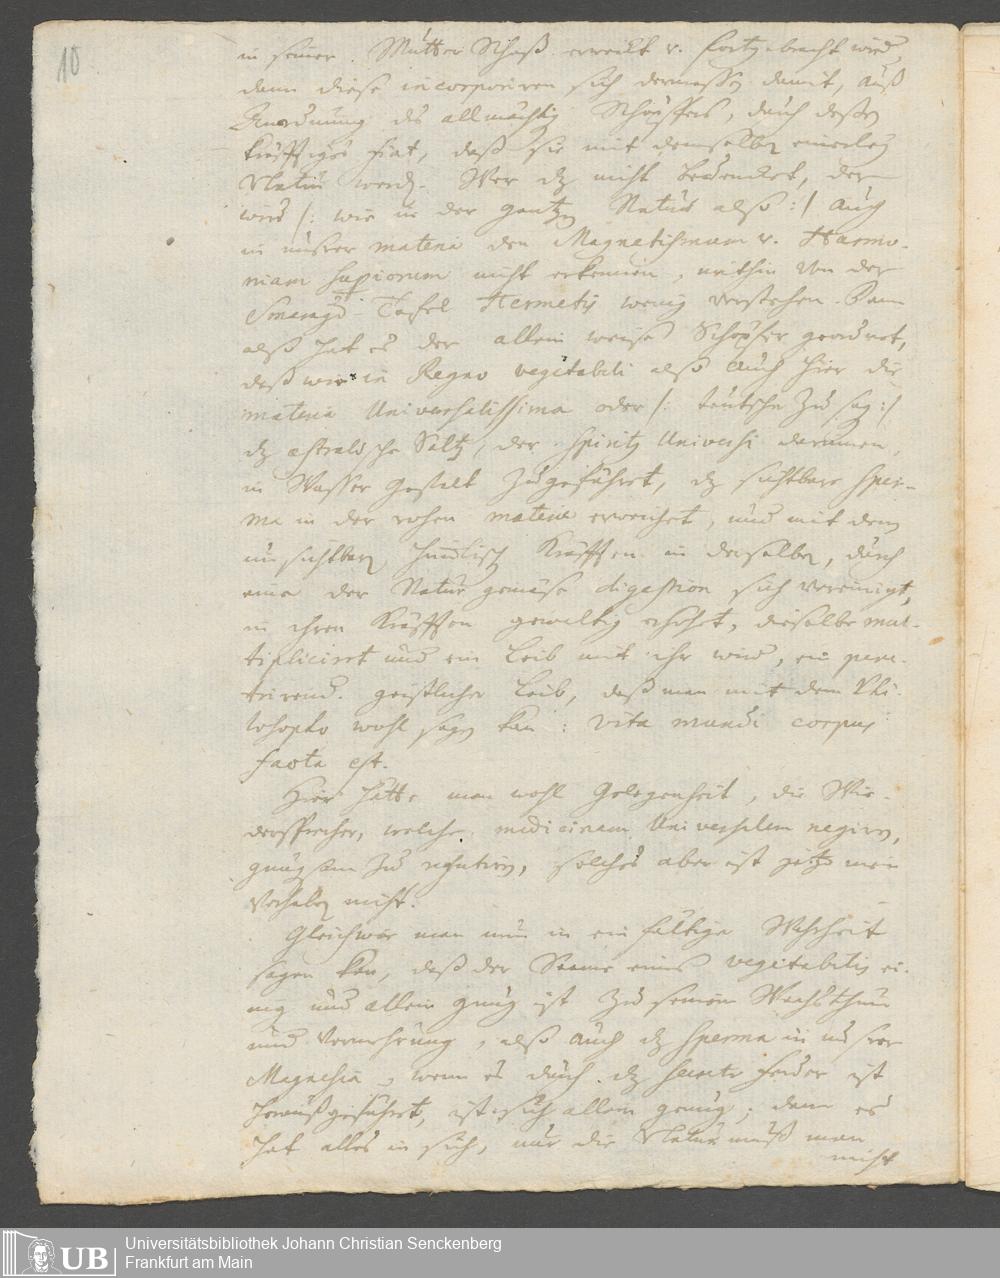 10
in seiner Mutter Schoß erweckt v. fortgebracht wird,
dann diese incorporiren sich dermassen damit, auß
Anordnung des allmächtig Schöpfers, durch deßen
kräfftiges fiat, daß sie mit demselben einerley
Natur werd. Wer dz nicht bedencket, der
wird /: wie in der gantzen Natur also :/ auch
in unsrer materia den Magnetismum v. Harmo-
niam superiorum nicht erkennen, mithin von der
Smaragd-Tafel Hermetis wenig verstehen. Dann
also hat es der allein weise Schöpfer geordnet,
daß wie in Regno vegetabili also auch hier die
materia Universalissima oder /: teutsch zu sag :/
dz astralische Saltz, der Spiritus Universi darinnen,
in Wasser Gestalt zugeführet, dz sichtbare Sper-
ma in der rohen materia erweichet, und mit dem
unsichtbaren himlisch Kräfften in derselben, durch
eine der Natur gemäse digestion sich vereinigt,
in ihren Kräfften gewaltig erhöhet, dieselbe mul-
tipliciret und ein Leib mit ihr wird, ein pene-
trirend. geistlicher Leib, daß man mit dem Phi-
losopho wohl sagen kan : vita mundi corpus
facta est.
Hier hätte man wohl Gelegenheit, die Wie-
dersprecher, welche medicinam Universalem negiren,
gnugsam zu refutiren, solches aber ist jetzo mein
Vorhaben nicht.
Gleichwie man nun in einfältiger Wahrheit
sagen kan, daß der Saame eines vegetabilis ei-
nig und allein gnug ist zu seinem Wachsthum
und Vermehrung, also auch dz Sperma in unsrer
Magnesia, wenn es durch dz
ist
herausgeführet, ist sich allein genug; dann es
hat alles in sich, nur die Natur muß man
nicht
UB
Universitätsbibliothek Johann Christian Senckenberg
Frankfurt am Main